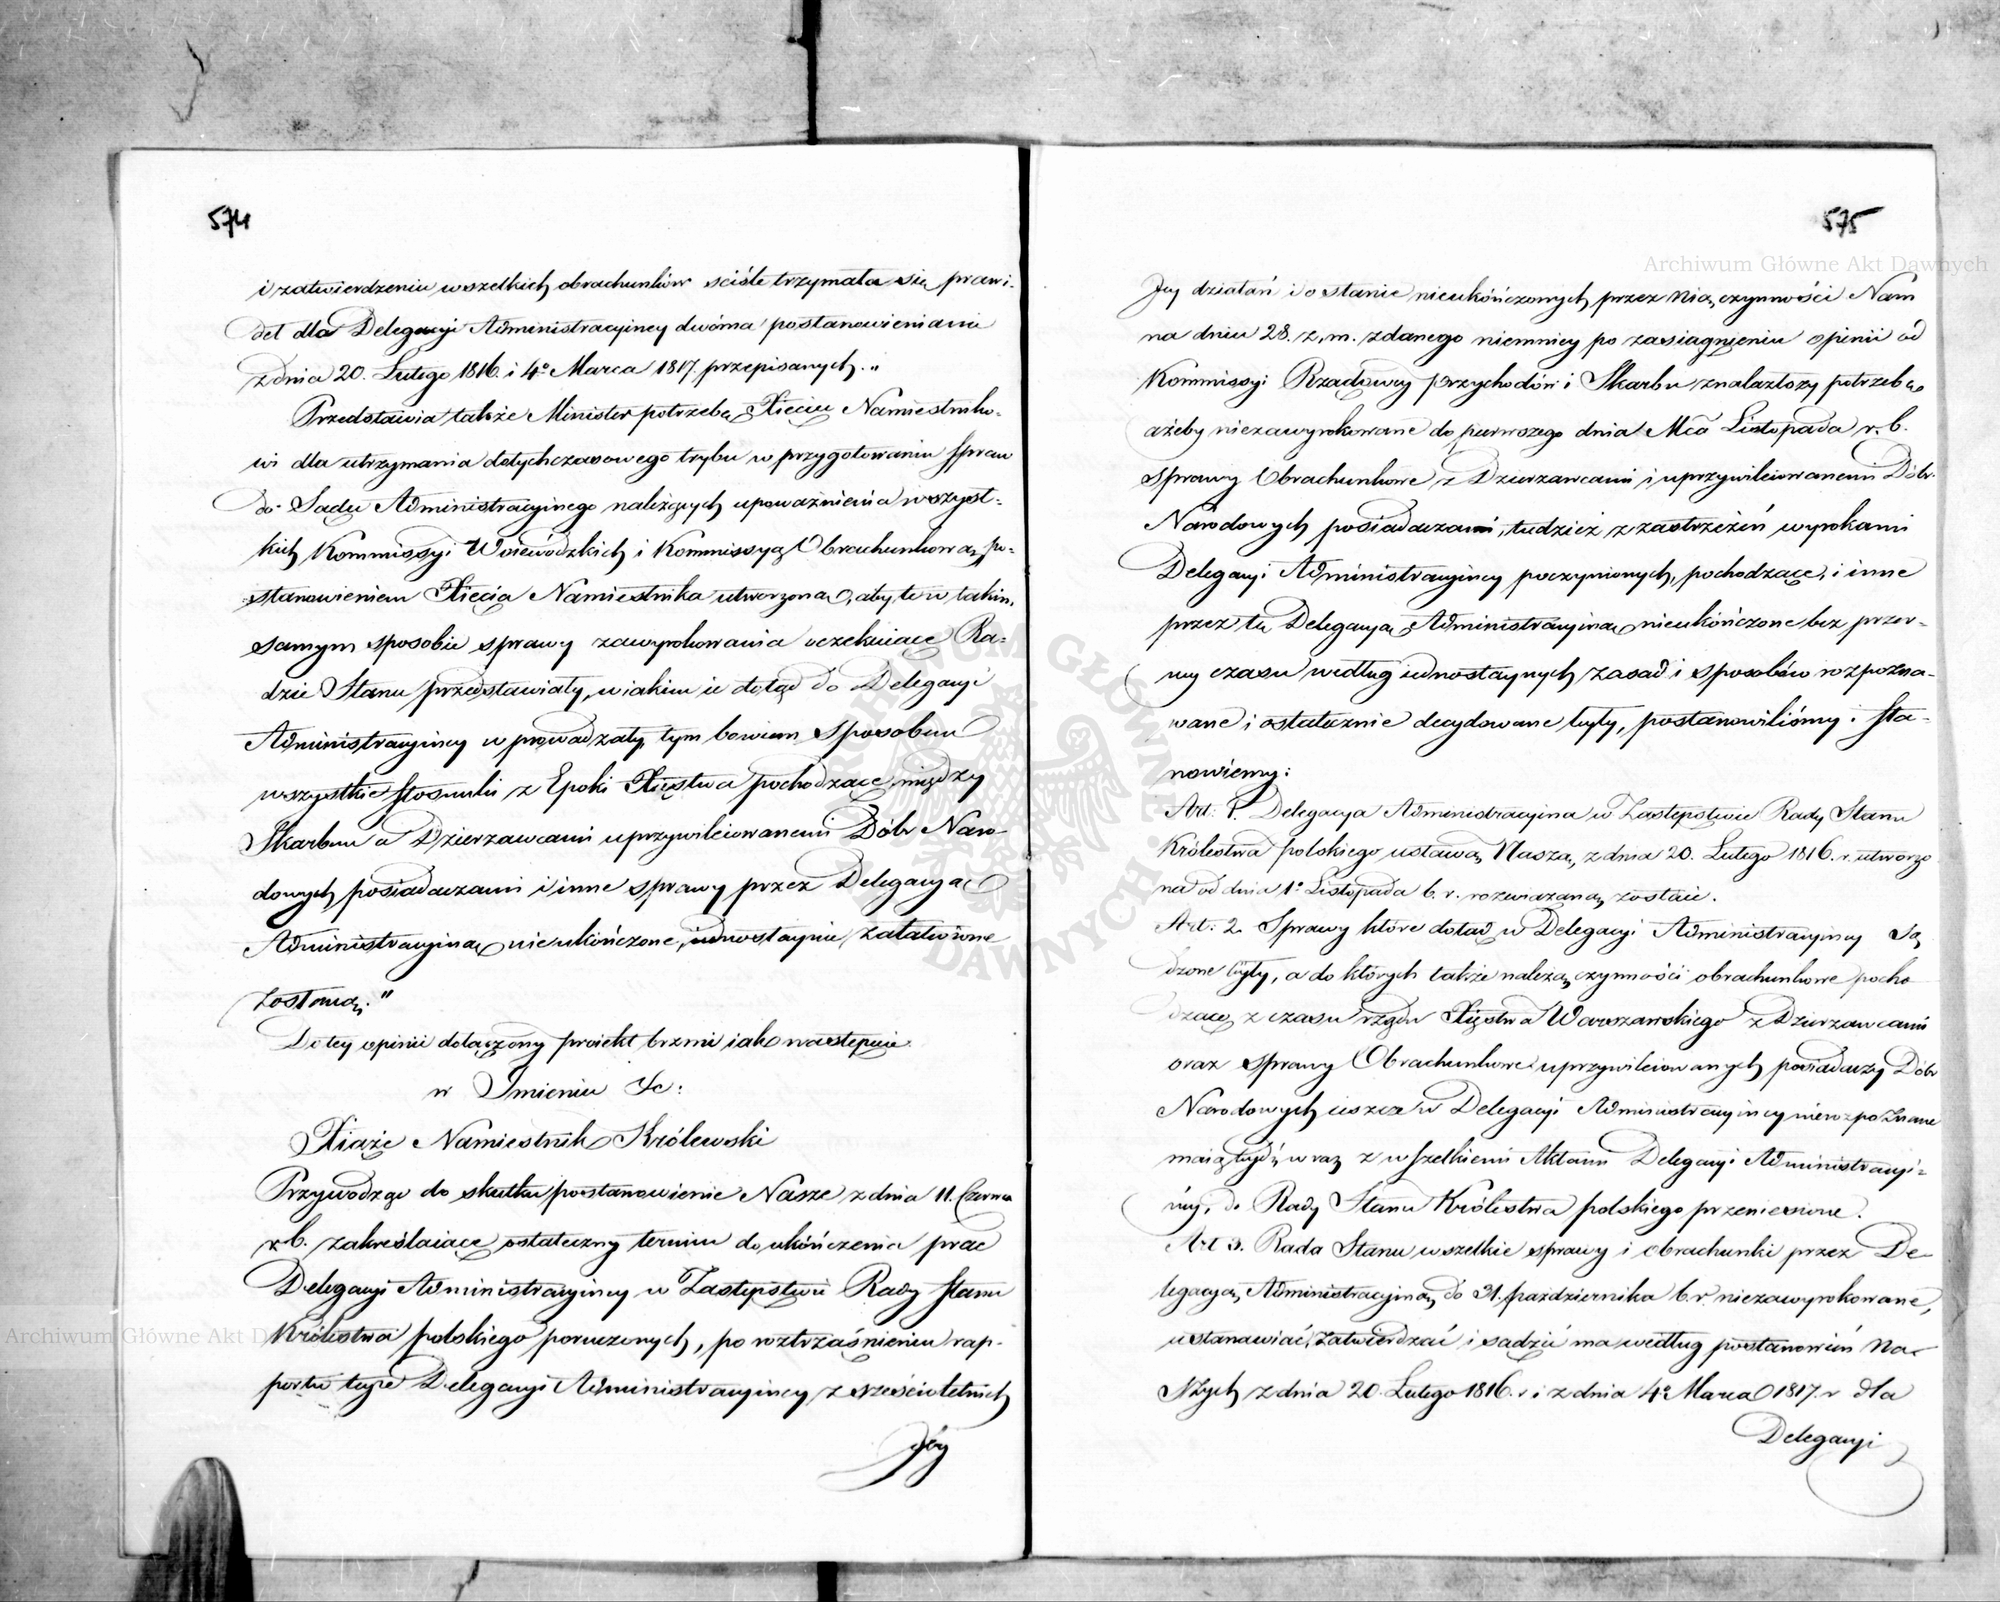 574
i zatwierdzeniu wszelkich obrachunków sciśle trzymała się prawi-
deł dla Delegacyi Administracyiney dwóma postanowieniami
z dnia 20. Lutego 1816. i 4º Marca 1817. przepisanych."
Przedstawia także Minister potrzebę Xięciu Namiestniko-
wi dla utrzymania dotychczasowego trybu w przygotowaniu spraw
do Sądu Administracyinego należących upoważnienia wszyst-
kich Kommissyi Woiewódzkich i Kommissyą Obrachunkową po-
stanowieniem Xięcia Namiestnika utworzoną, aby te w takim
samym sposobie sprawy zawyrokowania oczekuiące Ra-
dzie Stanu przedstawiały, w iakim ie dotąd do Delegacyi
Administracyiney wprowadzały, tym bowiem sposobem
wszystkie stosunki z Epoki Xięstwa pochodzące między
Skarbem a Dzierzawcami uprzywileiowanemi Dóbr Naro-
dowych posiadaczami i inne sprawy przez Delegacyą
Administracyiną nieukończone, iednostaynie załatwione
zostaną."
Do tey opinii dołączony proiekt brzmi iak następuie
w Imieniu &c:
Xiąże Namiestnik Królewski
Przywodząc do skutku postanowienie Nasze z dnia 11. Czerwca
r. b. zakreślaiące ostateczny termin do ukończenia prac
Delegacyi Administracyiney w Zastępstwie Rady Stanu
Królestwa polskiego poruczonych, po roztrząśnieniu rap-
portu teyże Delegacyi Administracyiney z sześcioletnich
Jey
575
Jey działań i o stanie nieukończonych przez Nią czynności Nam
na dniu 28. z. m. zdanego niemniey po zasiągnieniu opinii od
Kommissyi Rządowey Przychodów i Skarbu, znalazłszy potrzebę,
ażeby niezawyrokowane do pierwszego dnia Mca Listopada r. b.
sprawy Obrachunkowe z Dzierzawcami i uprzywileiowanemi Dóbr
Narodowych posiadaczami, tudzież z zastrzeżeń wyrokami
Delegacyi Administracyiney poczynionych, pochodzące, i inne
przez tę Delegacyą Administracyiną nieukończone bez przer-
wy czasu według iednostaynych zasad i sposobów rozpozna-
wane i ostatecznie decydowane były, postanowiliśmy i sta-
nowiemy:
Art: 1. Delegacya Administracyina w Zastępstwie Rady Stanu
Królestwa polskiego ustawą Naszą, z dnia 20. Lutego 1816. r. utworzo
na od dnia 1º Listopada b. r. rozwiązaną zostaie.
Art: 2. Sprawy które dotąd w Delegacyi Administracyiney są
dzone były, a do których także należą czynności obrachunkowe pocho
dzące z czasu rządu Xięstwa Warszawskiego z Dzierzawcami
oraz sprawy Obrachunkowe uprzywileiowanych posiadaczy Dóbr
Narodowych ieszcze w Delegacyi Administracyiney nierozpoznane
maią bydź wraz z wszelkiemi Aktami Delegacyi Administracyi-
ney, do Rady Stanu Królestwa polskiego przeniesione.
Art 3. Rada Stanu wszelkie sprawy i obrachunki przez De-
legacyą Administracyiną do 31. października b. r. niezawyrokowane,
ustanawiać, zatwierdzać i sądzić ma według postanowień Na-
szych z dnia 20 Lutego 1816. r. i z dnia 4º Marca 1817. r. dla
Delegacyi
Archiwum Główne Akt Dawnych